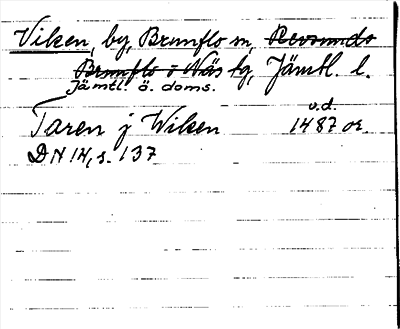 Viken, by, Brunflo sn, Revsunds
Brunflo o Näs tg, Jämtl. l.
Jämtl. ö. doms.
Taren j Wiken
u.d.
1487 or.
DN 14, s. 137